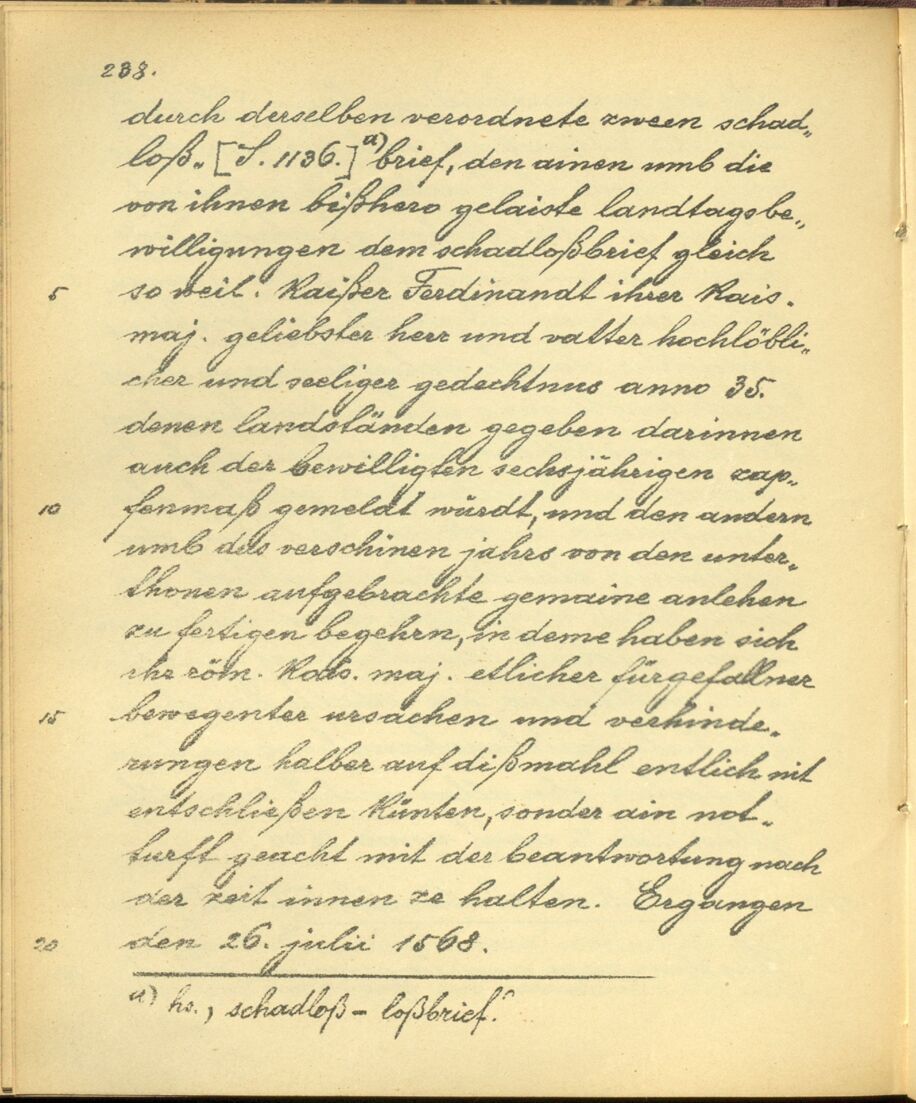 238.
durch derselben verordnete zween schad„
loß„ [S. 1136.] a) brief, den ainen umb die
von ihnen bißhero gelaiste landtagsbe„
willigungen dem schadloßbrief gleich
5 so weil. Kaißer Ferdinandt ihrer Kais.
maj. geliebster herr und vatter hochlöbli„
cher und seeliger gedechtnus anno 35.
denen landständen gegeben darinnen
auch der bewilligten sechsjährigen zap„
10 fenmaß gemeldt würdt, und den andern
umb das verschinen jahrs von den unter„
thonen aufgebrachte gemaine anlehen
zu fertigen begehrn, in deme haben sich
ihr röm. Kais. maj. etlicher fürgefallner
15 bewegenter ursachen und verhinde„
rungen halber auf dißmahl entlich nit
entschließen künten, sonder ain not„
turft geacht mit der beantwortung nach
der zeit innen ze halten. Ergangen
20 den 26. julii 1568.
a) hs., schadloß - loßbrief.“